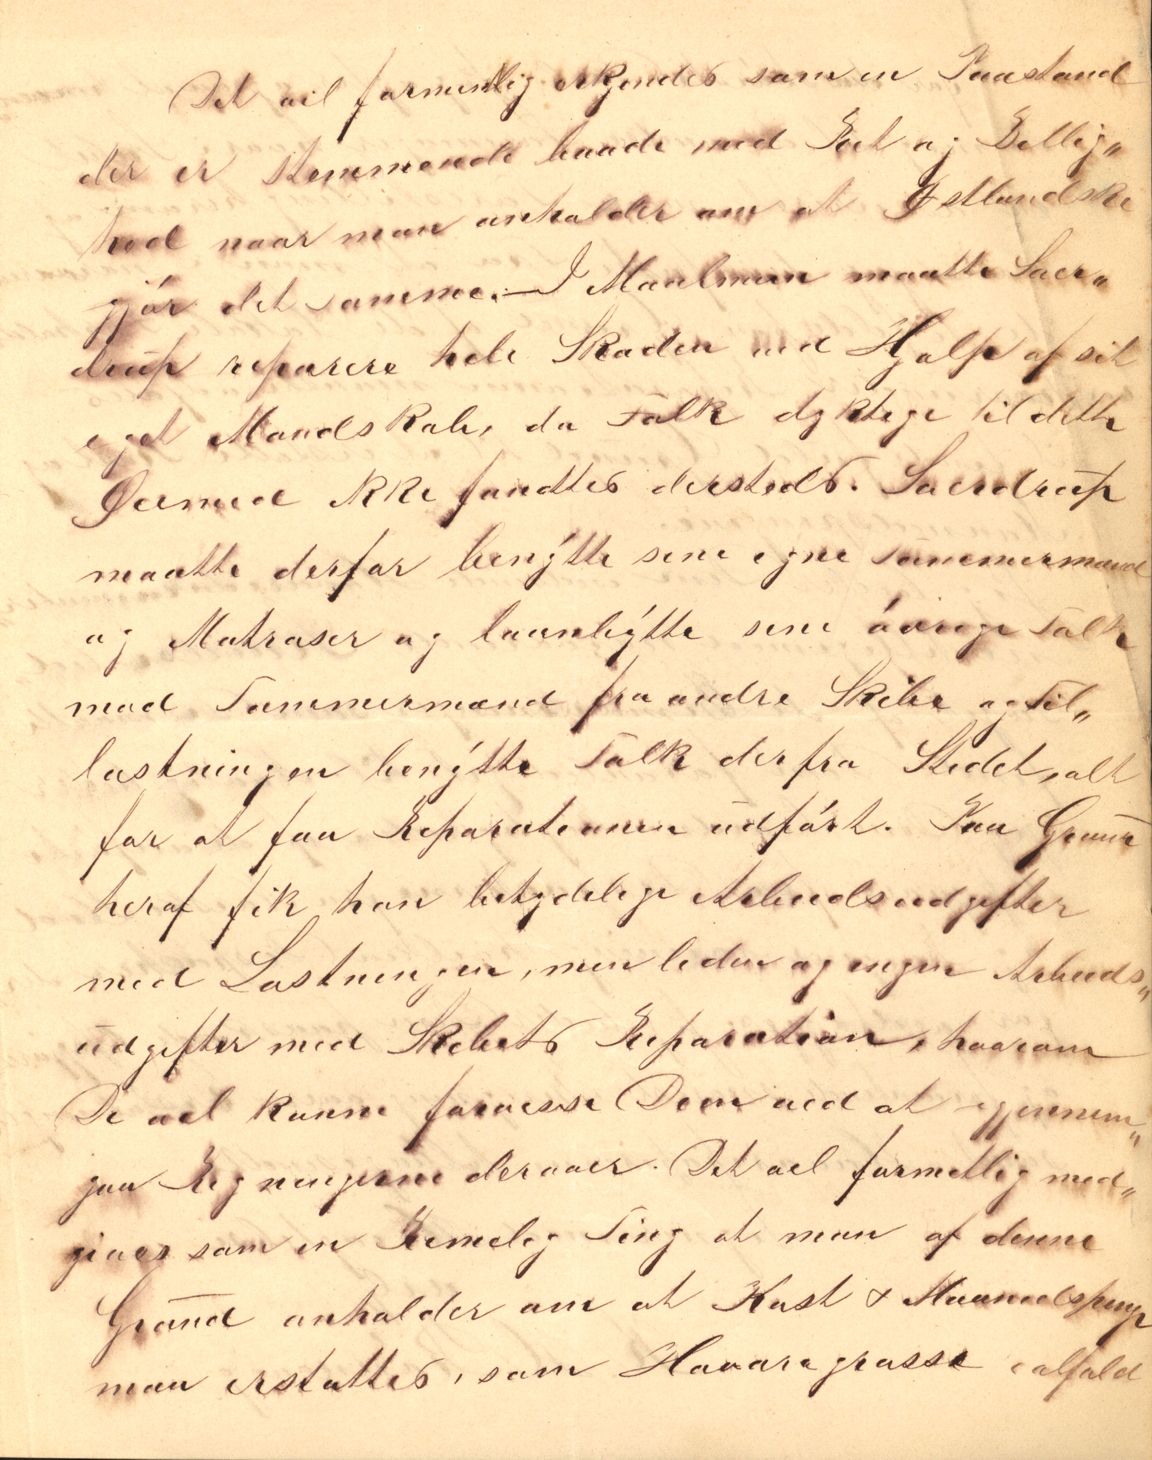 Det vil formentlig erkjendes som en Paastand
der er stemmende baade med Ret og Billig„
hed naar man anholder om at Østlandske
gjör det samme. — I Maulmain maatte Sver„
drup reparere hele Skaden ved Hjælp af sit
eget Mandskab, da Folk dyktige til dette
Øiemed ikke fandtes dersteds. Sverdrup
maatte derfor benytte sine egne Tömmermænd
og Matroser og laanbytte sine övrige Folk
mod Tømmermænd fra andre Skibe og til„
lastningen benytte Folk der fra Stedet, alt
for at faa Reparationen udfört. Paa Grund
heraf fik han betydelige Arbeidsudgifter
med Lastningen, men liden og ingen Arbeids„
udgifter med Skibets Reparation, hvorom
De vil kunne forvisse Dem ved at gjennem„
gaa Regningerne derover. Det vil formetlig med„
gives som en Rimelig Ting at man af denne
Grund anholder om at Kost & Maanedspenge
maa erstattes, som Havarigrosse ialfald